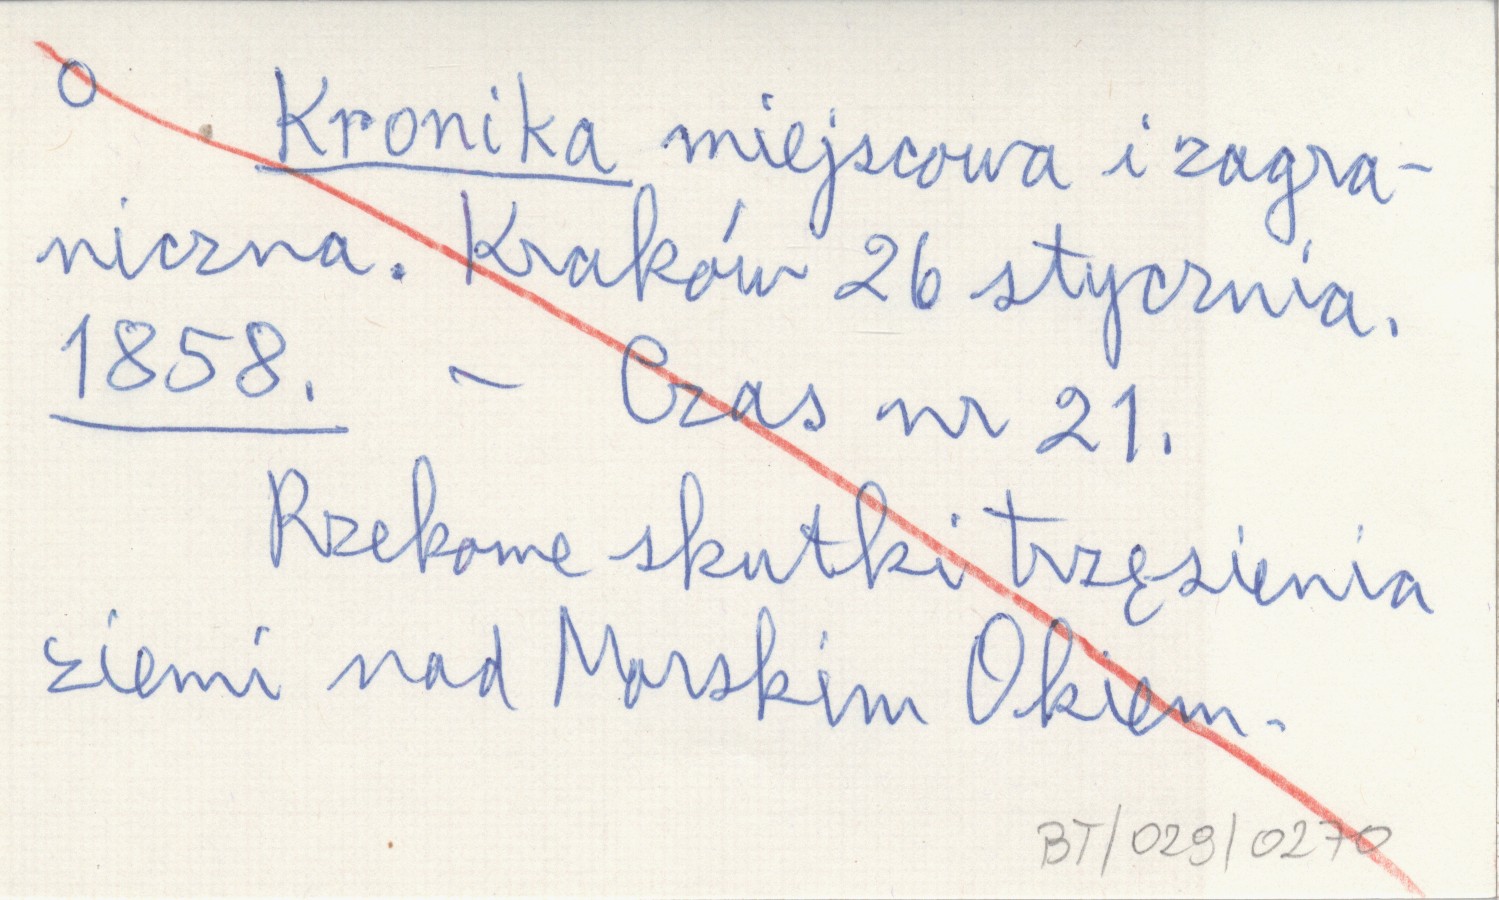 O Kronika miejscowa i zagra-
niczna. Kraków 26 stycznia.
1858. - Czas nr 21.
Rzekome skutki trzęsienia
ziemi nad Morskim Okiem.
BT/029/0270